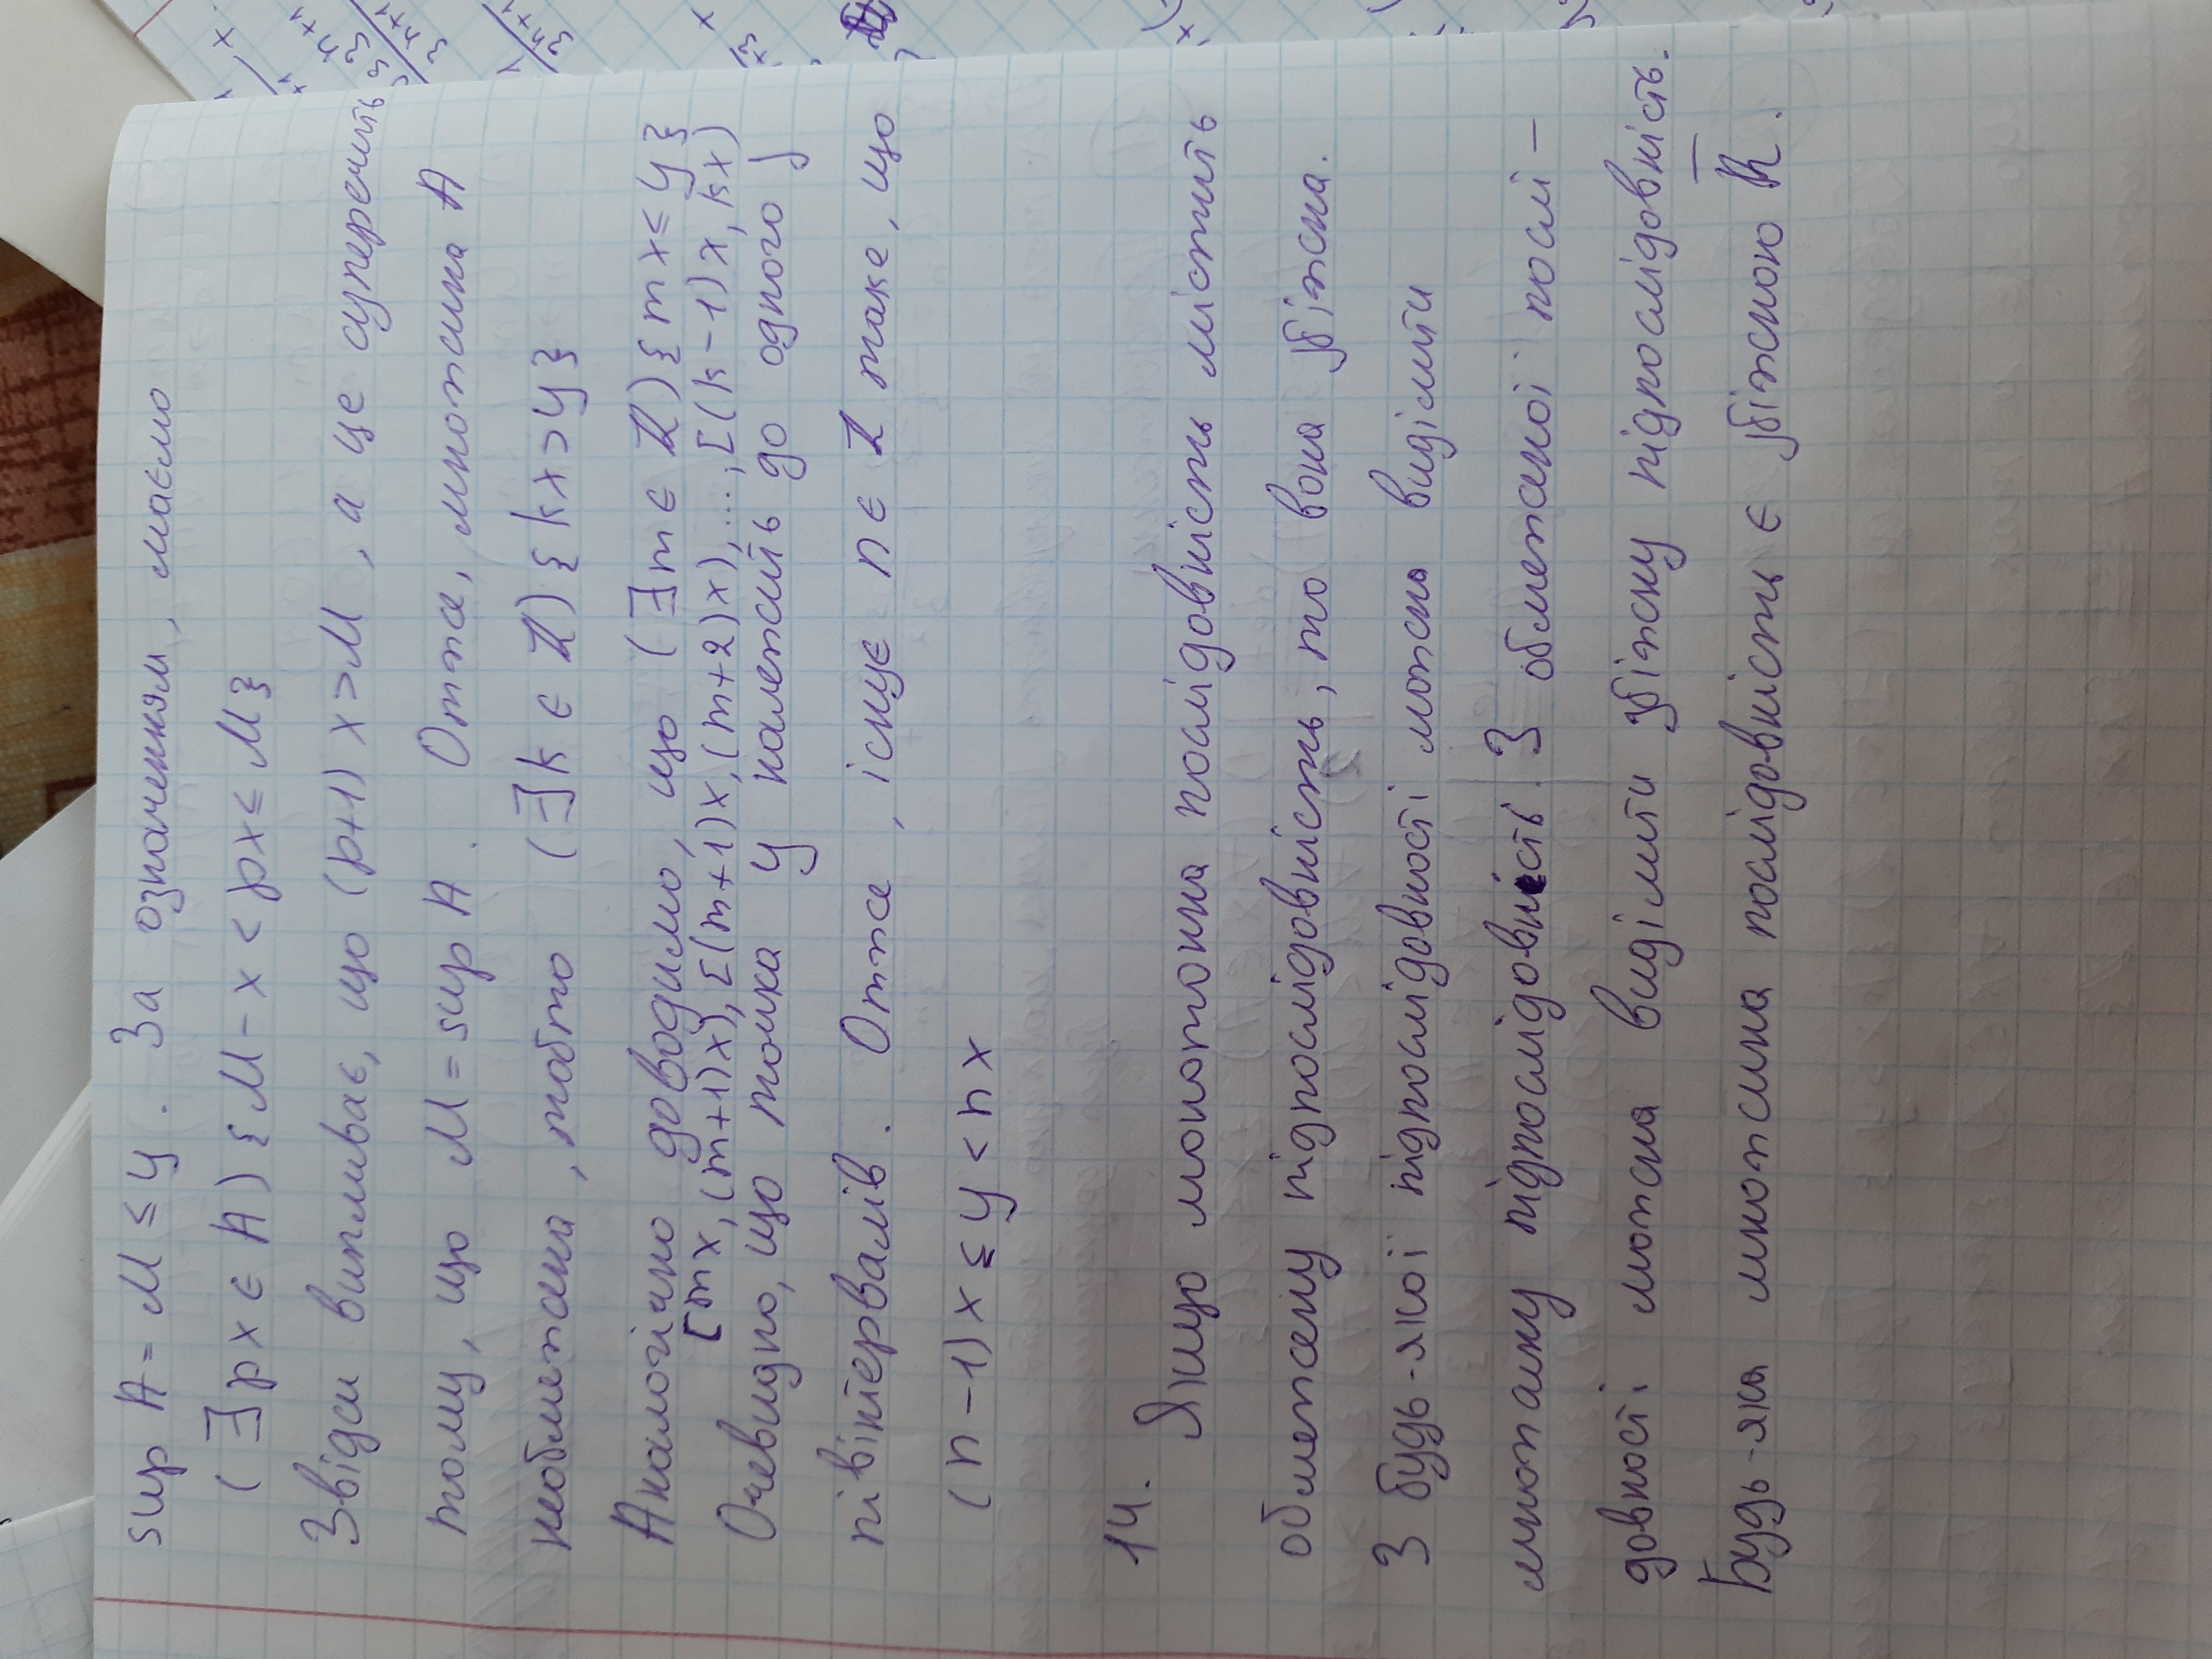 sup A = M ≤ y. За означенням, маємо
(∃px ∈ A) {M - x < px ≤ M}
Звідси випливає, що (p+1) x > M, а це суперечить
тому, що M = sup A. Отже, множина A
необмежена, тобто (∃k ∈ Z) {kx > y}
Аналогічно доводимо, що (∃m ∈ Z) {mx ≤ y}
[mx, (m+1)x), [(m+1)x, (m+2)x), ..., [(k-1)x, kx)
Очевидно, що точка y належить до одного з
півінтервалів. Отже, існує n ∈ Z таке, що
(n-1)x ≤ y < nx
14.
Якщо монотонна послідовність містить
обмежену підпослідовність, то вона збіжна.
З будь-якої підпослідовності можна виділити
множину підпослідовність. З обмеженої послі-
довності можна виділити збіжну підпослідовність.
Будь-яка множина послідовність є збіжною R̅.